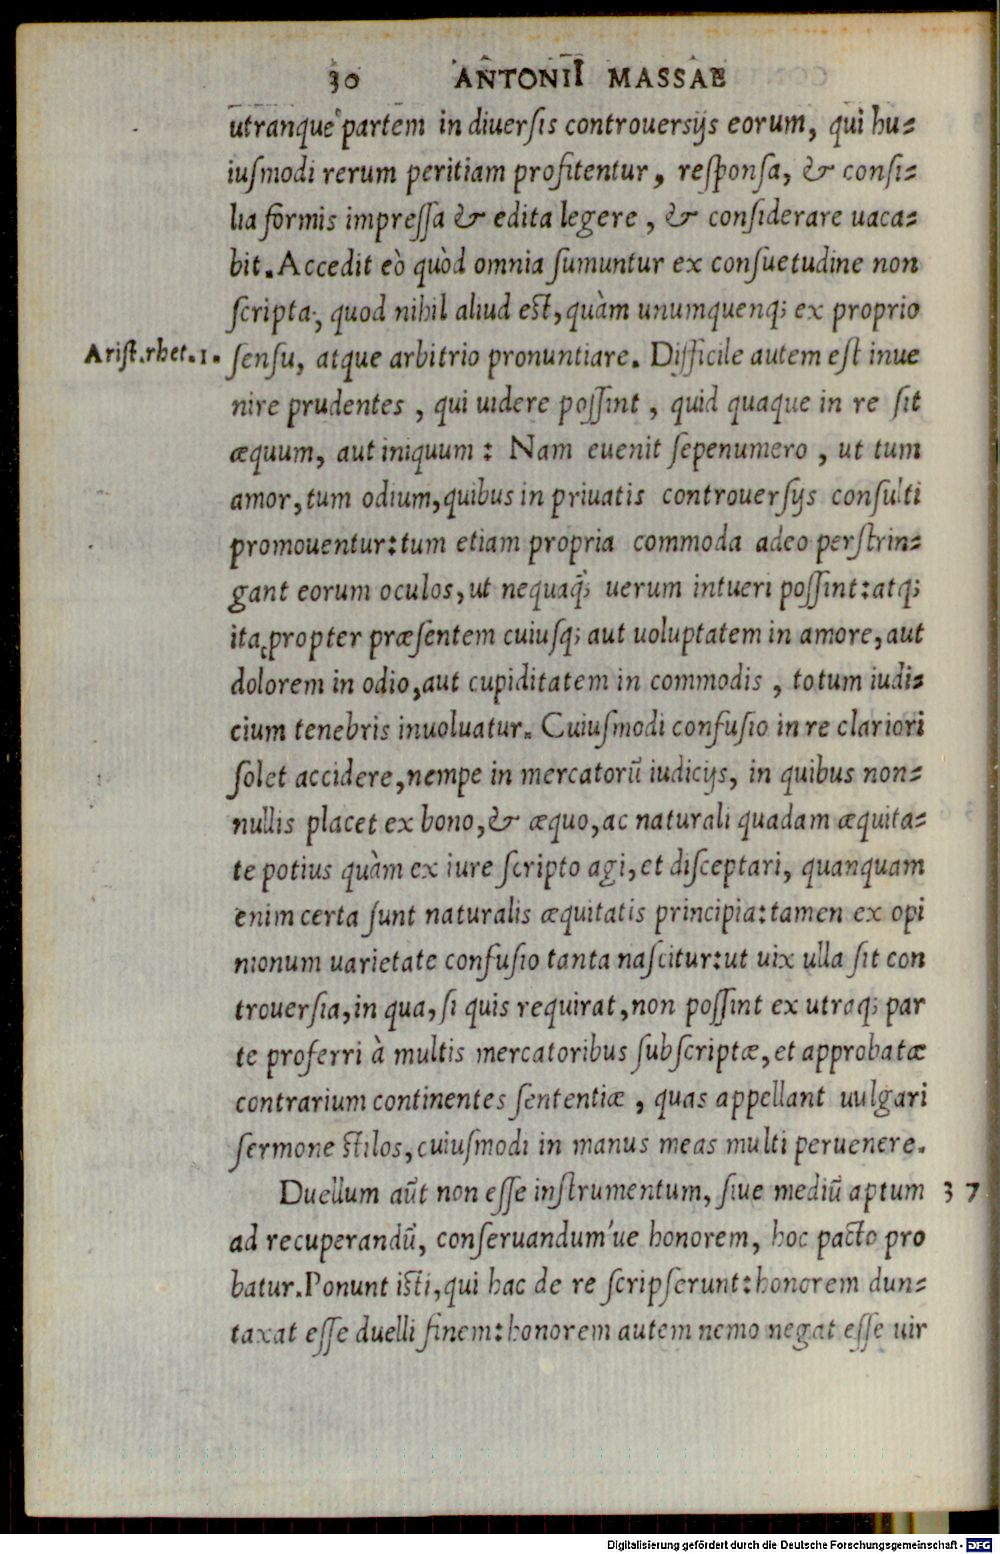 30 ANTONII MASSAE
utranque partem in diuersis controuersijs eorum, qui hu=
iusmodi rerum peritiam profitentur, responsa, & consi=
lia formis impressa & edita legere, & considerare uaca=
bit. Accedit eò quòd omnia sumuntur ex consuetudine non
scripta, quod nihil aliud est, quàm unumquenq; ex proprio
Arist.rhet.1. sensu, atque arbitrio pronuntiare. Difficile autem est inue
nire prudentes, qui uidere possint, quid quaque in re sit
æquum, aut iniquum: Nam euenit sepenumero, ut tum
amor, tum odium, quibus in priuatis controuersijs consulti
promouentur: tum etiam propria commoda adeo perstrin=
gant eorum oculos, ut nequaq̃; uerum intueri possint: atq;
ita propter præsentem cuiusq; aut uoluptatem in amore, aut
dolorem in odio, aut cupiditatem in commodis, totum iudi=
cium tenebris inuoluatur. Cuiusmodi confusio in re clariori
solet accidere, nempe in mercatorũ iudicijs, in quibus non=
nullis placet ex bono, & æquo, ac naturali quadam æquita=
te potius quàm ex iure scripto agi, et disceptari, quanquam
enim certa sunt naturalis æquitatis principia: tamen ex opi
nionum uarietate confusio tanta nascitur: ut uix ulla sit con
trouersia, in qua, si quis requirat, non possint ex utraq; par
te proferri à multis mercatoribus subscriptæ, et approbatæ
contrarium continentes sententiæ, quas appellant uulgari
sermone stilos, cuiusmodi in manus meas multi peruenere.
Duellum aũt non esse instrumentum, siue mediũ aptum 37
ad recuperandũ, conseruandum'ue honorem, hoc pacto pro
batur. Ponunt isti, qui hac de re scripserunt: honorem dun=
taxat esse duelli finem: honorem autem nemo negat esse uir
Digitalisierung gefördert durch die Deutsche Forschungsgemeinschaft - DFG